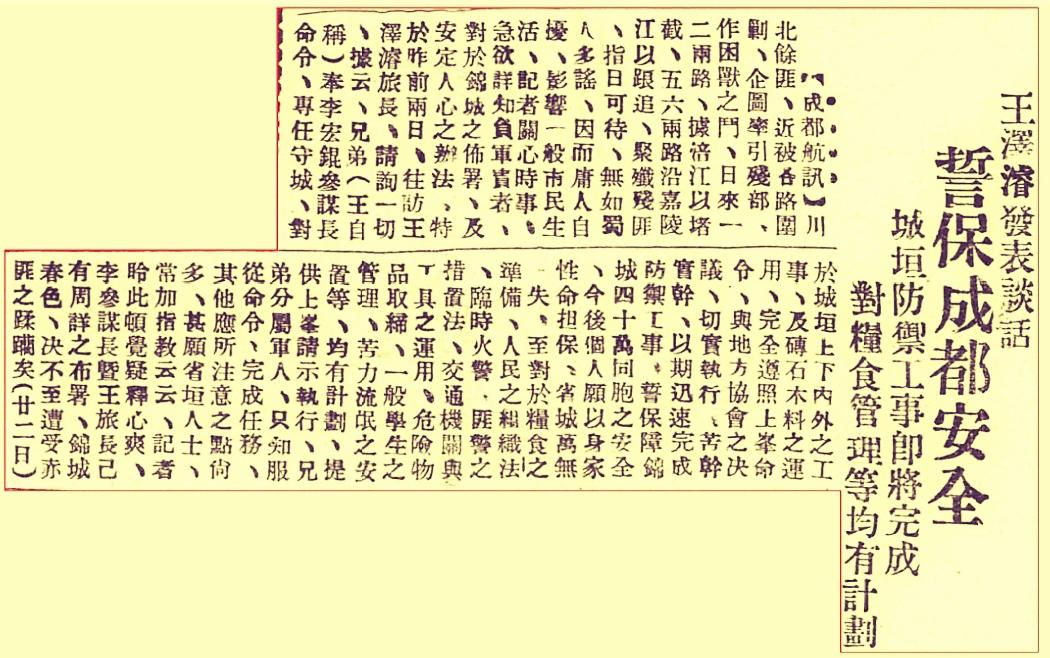 王澤濬發表談話
誓保成都安全
城垣防禦工事卽將完成
對糧食管理等均有計劃
【成都航訊】川
北餘匪、近被各路圍
剿、企圖率引殘部、
作困獸之鬥、日來一
二兩路、據涪江以堵
截、五六兩路沿嘉陵
江以跟追、聚殲殘匪
、指日可待、無如蜀
人多謠、因而庸人自
擾、影響一般市民生
活、記者關心時事、
急欲詳知負軍責者、
對於錦城之佈署、及
安定人心之辦法、特
於昨前兩日、往訪王
澤濬旅長、請詢一切
、據云、兄弟（王自
稱）奉李宏錕參謀長
命令、專任守城、對
於城垣上下內外之工
事、及磚石木料之運
用、完全遵照上峯命
令、與地方協會之決
議、切實執行、苦幹
實幹、以期迅速完成
防禦工事、誓保障錦
城四十萬同胞之安全
、今後個人願以身家
性命担保、省城萬無
一失、至對於糧食之
準備、人民之組織法
、臨時火警、匪警之
措置法、交通機關與
工具之運用、危險物
品取締、一般學生之
管理、苦力流氓之安
置等、均有計劃、提
供上峯請示執行、兄
弟分屬軍人、只知服
從命令、完成任務、
其他應所注意之點尙
多、甚願省垣人士、
常加指教云云、記者
聆此頓覺疑釋心爽、
李參謀長曁王旅長已
有周詳之布署、錦城
春色、決不至遭受赤
匪之蹂躪矣（廿二日）